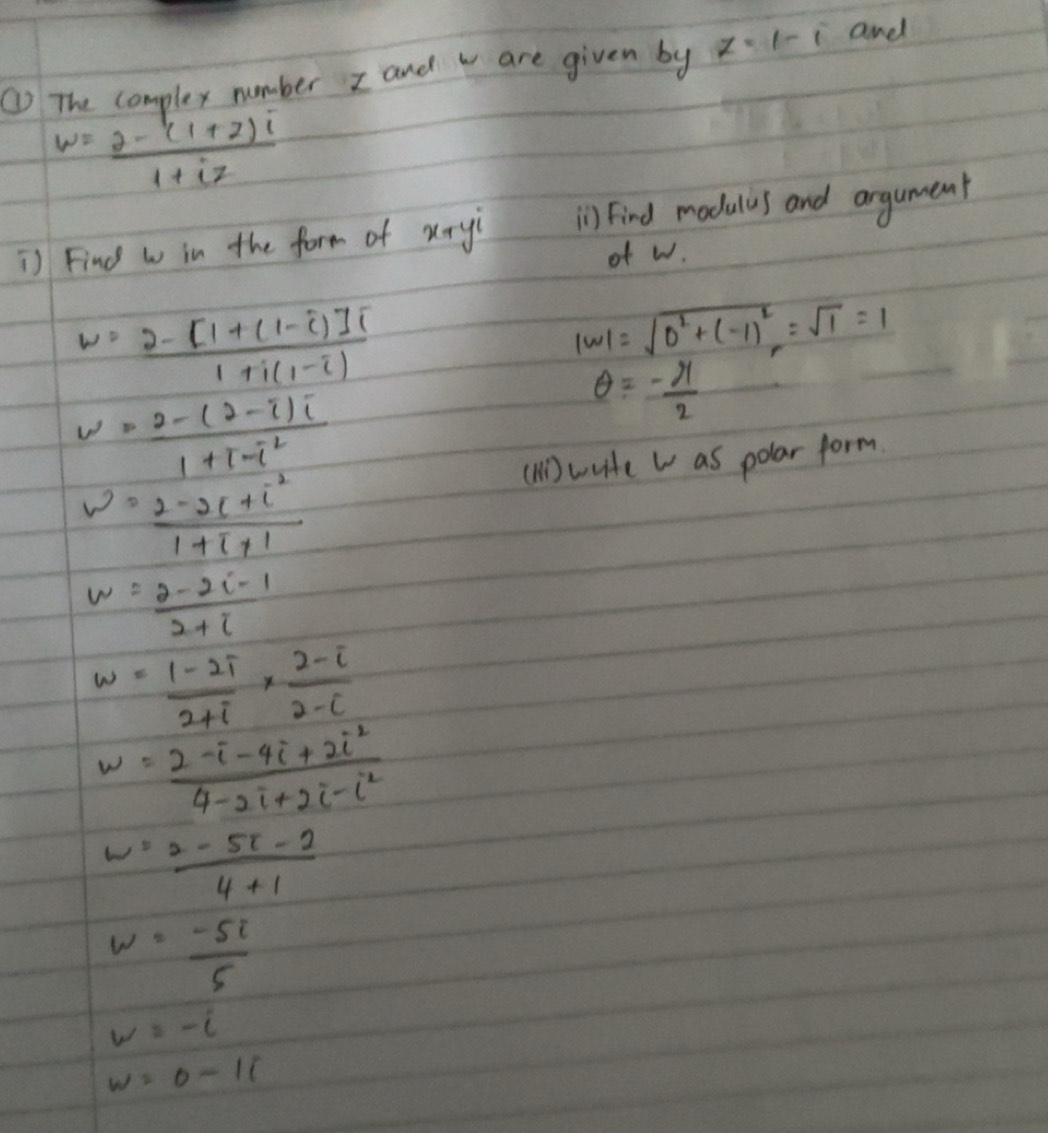 ① The complex number z and w are given by z = 1 - i and
w = \frac{2 - (1+z)i}{1 + iz}
i) Find w in the form of x+yi
w = \frac{2 - [1 + (1 - i)]i}{1 + i(1 - i)}
w = \frac{2 - (2 - i)i}{1 + i - i²}
w = \frac{2 - 2i + i²}{1 + i + 1}
w = \frac{2 - 2i - 1}{2 + i}
w = \frac{1 - 2i}{2 + i} × \frac{2 - i}{2 - i}
w = \frac{2 - i - 4i + 2i²}{4 - 2i + 2i - i²}
w = \frac{2 - 5i - 2}{4 + 1}
w = \frac{-5i}{5}
w = -i
w = 0 - 1i
ii) Find modulus and argument
of w.
|w| = √(0² + (-1)²) = √1 = 1
θ = -\frac{π}{2}
(iii) write w as polar form.